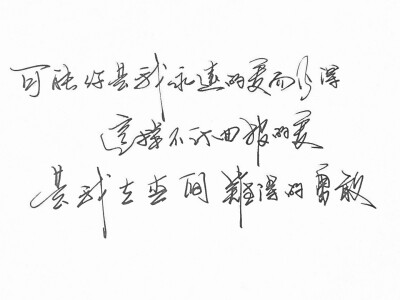 可能你是我永远的爱而不得
这样不计回报的爱
是我去查间難得的勇敢